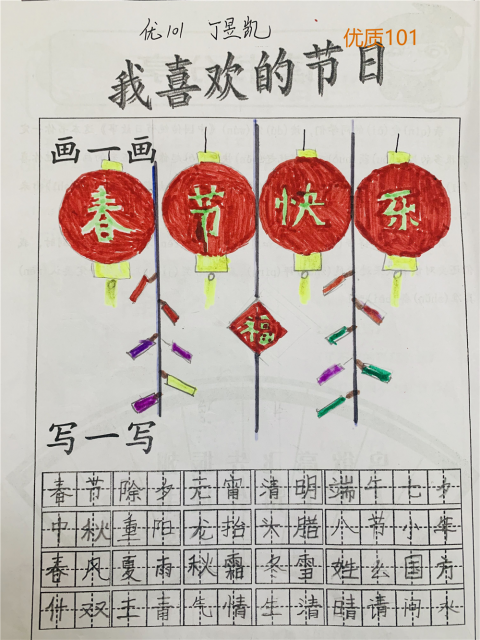 优101 丁昱凯
优质101
我喜欢的节日
画一画
春 节 快 乐
福
写一写
春节除夕元宵清明端午七夕
中秋重阳龙抬头腊八节小年
春风夏雨秋霜冬雪姓么国方
什双王青气情生清晴请问水